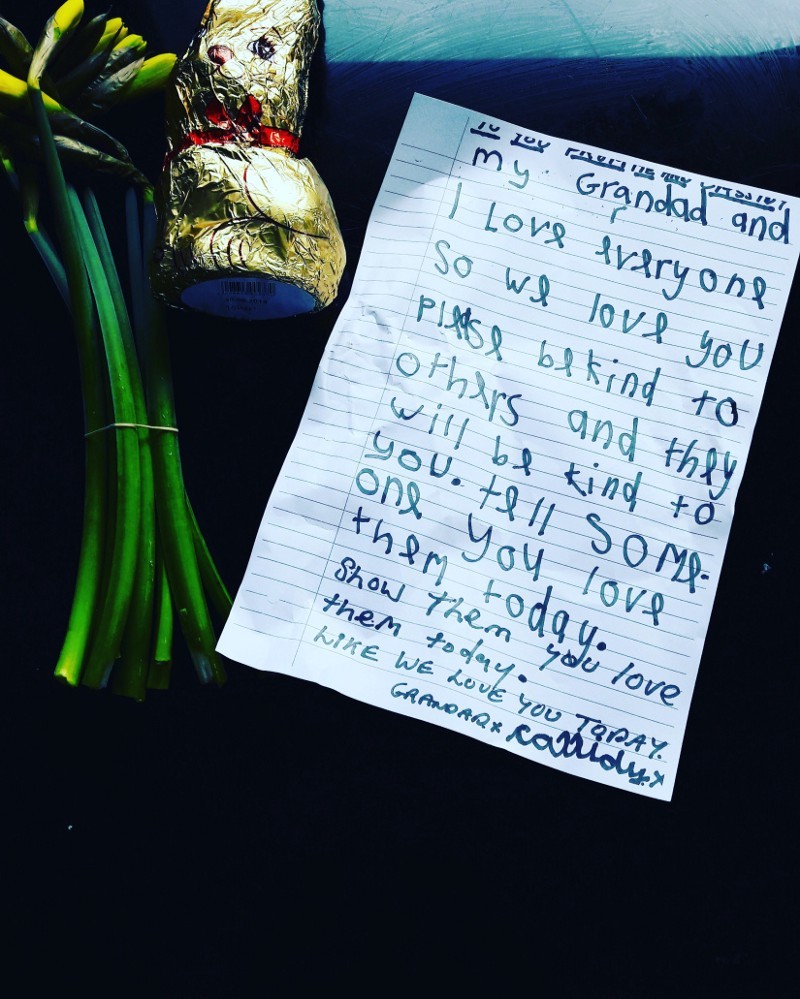 TO YOU FROM ME AND CASSIDY
my Grandad and
I Love everyone
So we love you
please be kind to
others and they
will be kind to
you. tell some-
one you love
them today.
Show them you love
them today.
LIKE WE LOVE YOU TODAY.
GRANDAR x Cassidy.x